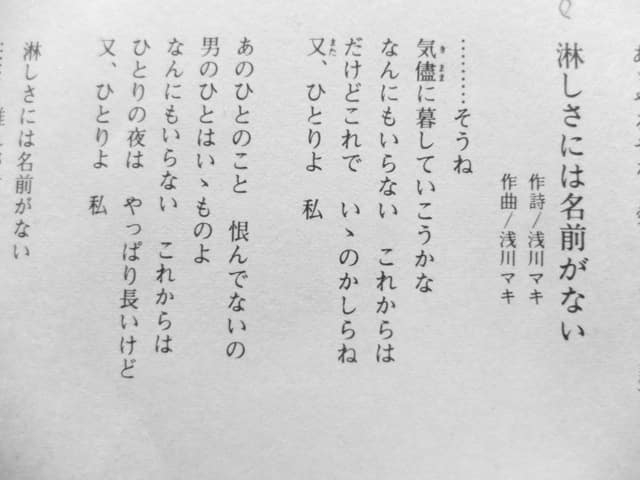 淋しさには名前がない
作詩／浅川マキ
作曲／浅川マキ
………そうね
気儘に暮していこうかな
なんにもいらない　これからは
だけどこれで　いゝのかしらね
又、ひとりよ　私
あのひとのこと　恨んでないの
男のひとはいゝものよ
なんにもいらない　これからは
ひとりの夜は　やっぱり長いけど
又、ひとりよ　私
淋しさには名前がない